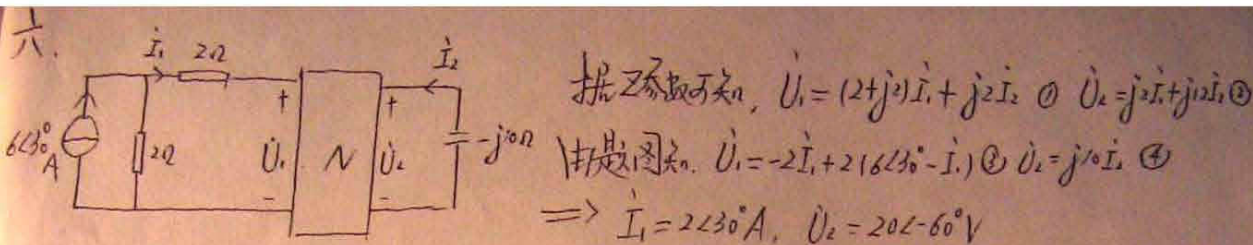 六.
İ₁ 2Ω İ₂
6∠30° A 2Ω + U̇₁ - N + U̇₂ - -j10Ω
据Z参数可知, U̇₁=(2+j2)İ₁+j2İ₂ ① U̇₂=j2İ₁+j12İ₂ ②
据题图知. U̇₁=-2İ₁+2(6∠30°-İ₁) ③ U̇₂=j10İ₂ ④
=> İ₁=2∠30°A, U̇₂=20∠-60°V